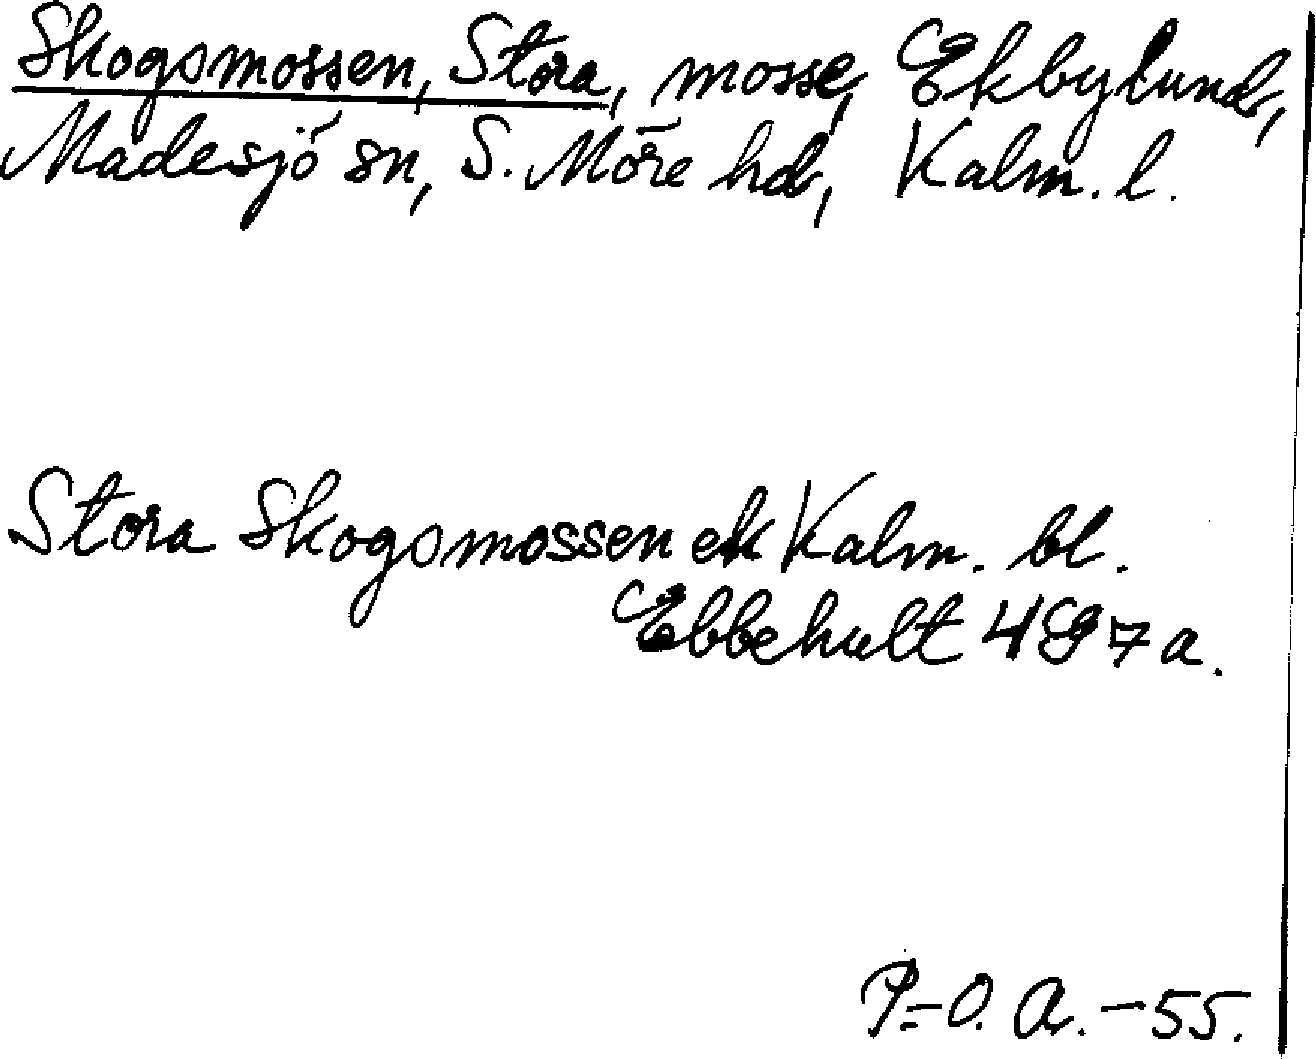 Skogsmossen, Stora, mosse, Ekbylund,
Madesjö sn, S. Möre hd, Kalm. l.
Stora Skogsmossen ek Kalm. bl.
Ebbehult 4G7a.
P-O. A. -55.